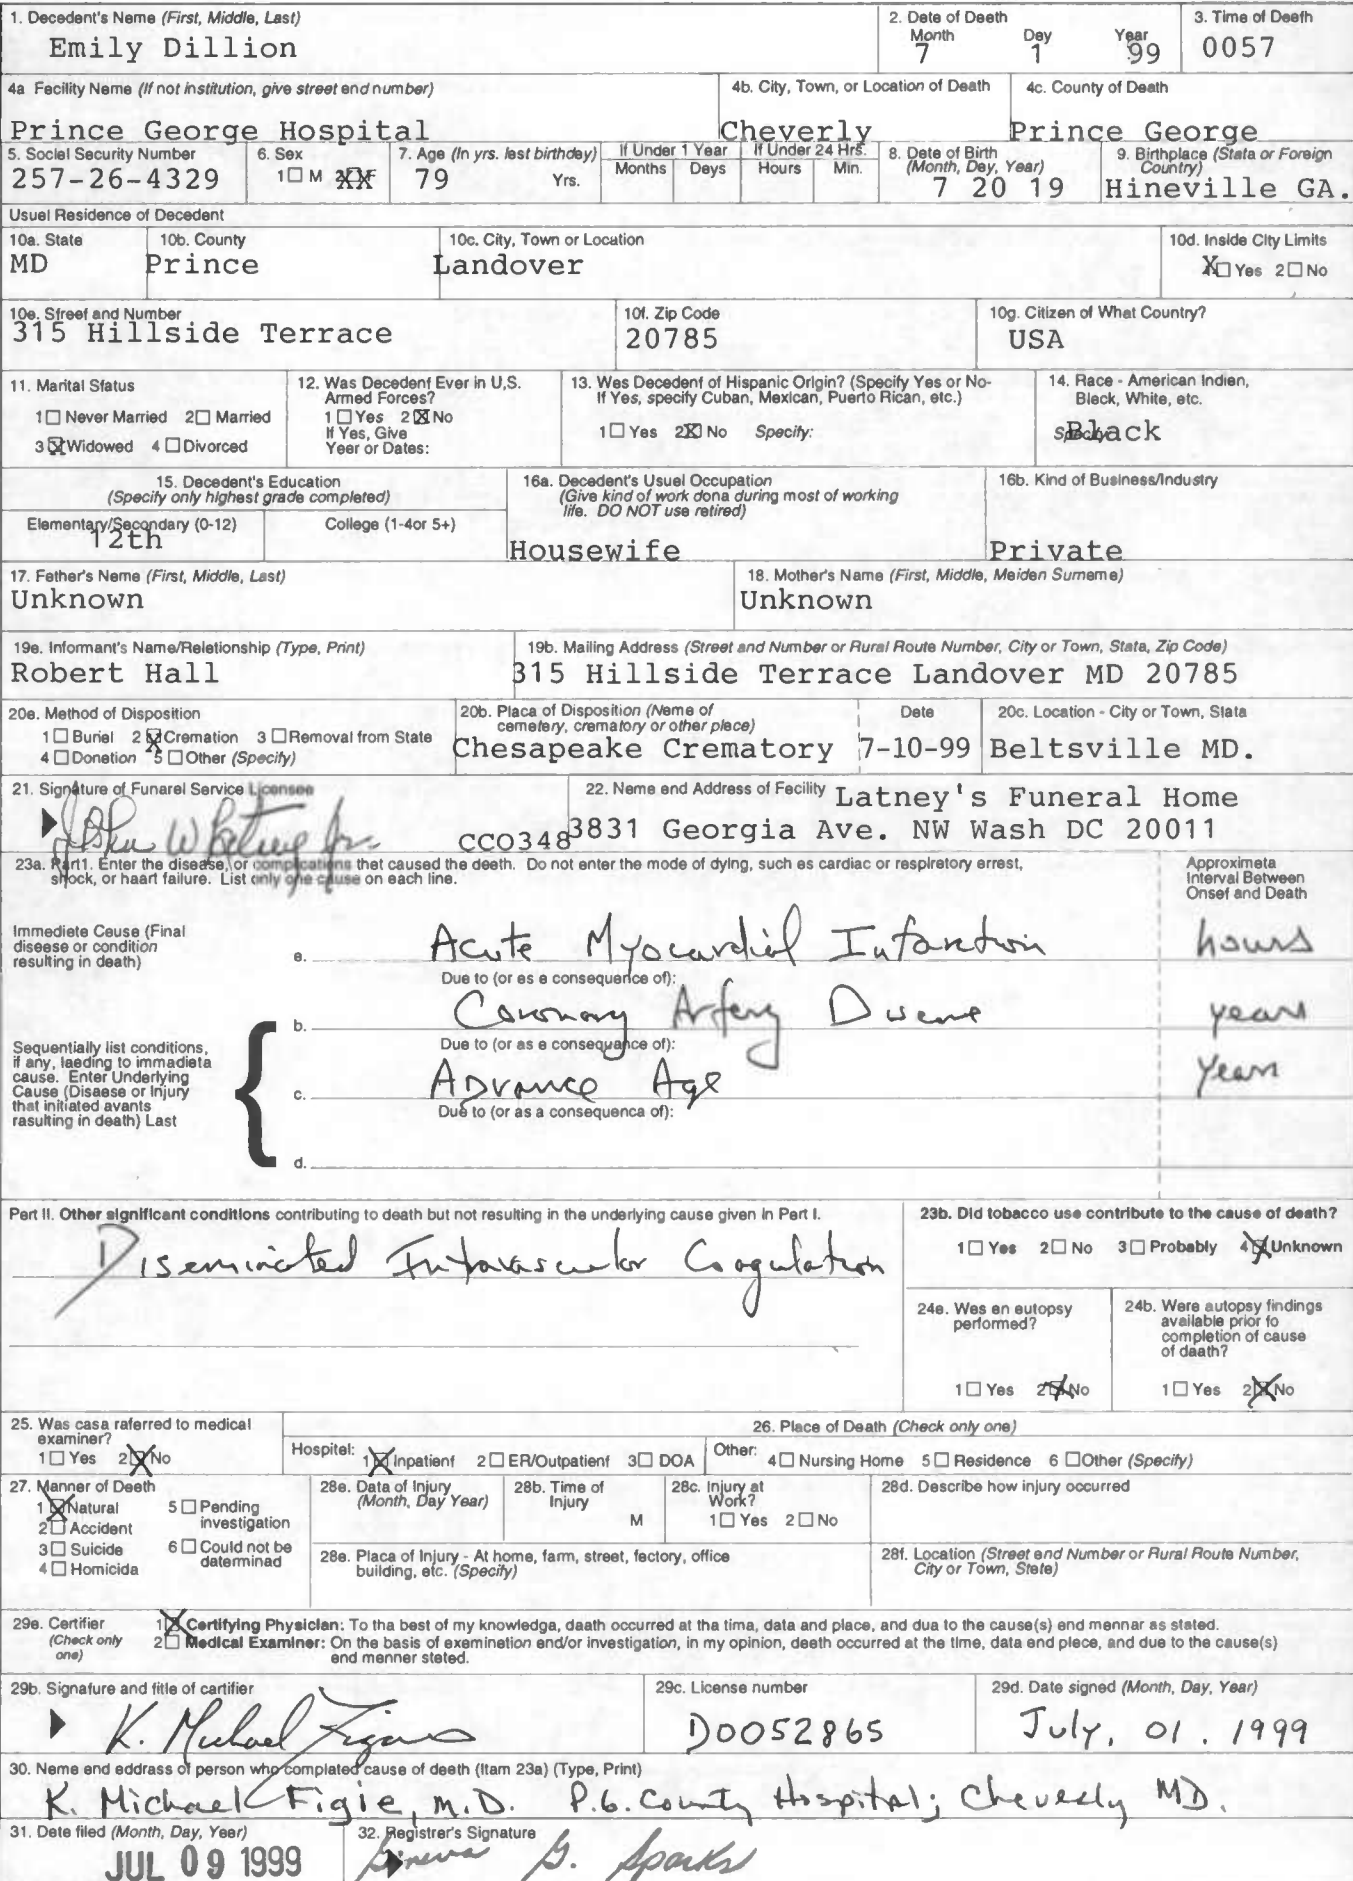 1. Decedent's Name (First, Middle, Last)
Emily Dillion
2. Date of Death
Month Day Year
7 1 99
3. Time of Death
0057
4a Facility Name (If not institution, give street and number)
Prince George Hospital
4b. City, Town, or Location of Death
Cheverly
4c. County of Death
Prince George
5. Social Security Number
257-26-4329
6. Sex
1☐ M XX F
7. Age (In yrs. last birthday)
79 Yrs.
If Under 1 Year
Months Days
If Under 24 Hrs.
Hours Min.
8. Date of Birth
(Month, Day, Year)
7 20 19
9. Birthplace (State or Foreign
Country)
Hineville GA.
Usual Residence of Decedent
10a. State
MD
10b. County
Prince
10c. City, Town or Location
Landover
10d. Inside City Limits
X☐ Yes 2☐ No
10e. Street and Number
315 Hillside Terrace
10f. Zip Code
20785
10g. Citizen of What Country?
USA
11. Marital Status
1☐ Never Married 2☐ Married
3☒ Widowed 4☐ Divorced
12. Was Decedent Ever in U.S.
Armed Forces?
1☐ Yes 2☒ No
If Yes, Give
Year or Dates:
13. Was Decedent of Hispanic Origin? (Specify Yes or No-
If Yes, specify Cuban, Mexican, Puerto Rican, etc.)
1☐ Yes 2☒ No Specify:
14. Race - American Indian,
Black, White, etc.
Specify:
Black
15. Decedent's Education
(Specify only highest grade completed)
Elementary/Secondary (0-12)
12th
College (1-4or 5+)
16a. Decedent's Usual Occupation
(Give kind of work done during most of working
life. DO NOT use retired)
Housewife
16b. Kind of Business/Industry
Private
17. Father's Name (First, Middle, Last)
Unknown
18. Mother's Name (First, Middle, Maiden Surname)
Unknown
19a. Informant's Name/Relationship (Type, Print)
Robert Hall
19b. Mailing Address (Street and Number or Rural Route Number, City or Town, State, Zip Code)
315 Hillside Terrace Landover MD 20785
20a. Method of Disposition
1☐ Burial 2☒ Cremation 3☐ Removal from State
4☐ Donation 5☐ Other (Specify)
20b. Place of Disposition (Name of
cemetery, crematory or other place)
Chesapeake Crematory
Date
7-10-99
20c. Location - City or Town, State
Beltsville MD.
21. Signature of Funeral Service Licensee
CCO348
22. Name and Address of Facility
Latney's Funeral Home
3831 Georgia Ave. NW Wash DC 20011
23a. Part1. Enter the disease, or complications that caused the death. Do not enter the mode of dying, such as cardiac or respiratory arrest,
shock, or heart failure. List only one cause on each line.
Approximate
Interval Between
Onset and Death
Immediate Cause (Final
disease or condition
resulting in death)
a. Acute Myocardial Infarction hours
Due to (or as a consequence of):
b. Coronary Artery Disease years
Due to (or as a consequence of):
Sequentially list conditions,
if any, leading to immediate
cause. Enter Underlying
Cause (Disease or Injury
that initiated events
resulting in death) Last
c. Advance Age Years
Due to (or as a consequence of):
d.
Part II. Other significant conditions contributing to death but not resulting in the underlying cause given in Part I.
Diseminated Intravascular Coagulation
23b. Did tobacco use contribute to the cause of death?
1☐ Yes 2☐ No 3☐ Probably 4☒ Unknown
24a. Was an autopsy
performed?
1☐ Yes 2☒ No
24b. Were autopsy findings
available prior to
completion of cause
of death?
1☐ Yes 2☒ No
25. Was case referred to medical
examiner?
1☐ Yes 2☒ No
26. Place of Death (Check only one)
Hospital: 1☒ Inpatient 2☐ ER/Outpatient 3☐ DOA
Other: 4☐ Nursing Home 5☐ Residence 6☐ Other (Specify)
27. Manner of Death
1☒ Natural 5☐ Pending
investigation
2☐ Accident
3☐ Suicide 6☐ Could not be
determined
4☐ Homicide
28a. Date of Injury
(Month, Day Year)
28b. Time of
Injury
M
28c. Injury at
Work?
1☐ Yes 2☐ No
28d. Describe how injury occurred
28e. Place of Injury - At home, farm, street, factory, office
building, etc. (Specify)
28f. Location (Street and Number or Rural Route Number,
City or Town, State)
29a. Certifier
(Check only
one)
1☒ Certifying Physician: To the best of my knowledge, death occurred at the time, date and place, and due to the cause(s) and manner as stated.
2☐ Medical Examiner: On the basis of examination and/or investigation, in my opinion, death occurred at the time, date and place, and due to the cause(s)
and manner stated.
29b. Signature and title of certifier
K. Michael Figie
29c. License number
D0052865
29d. Date signed (Month, Day, Year)
July, 01. 1999
30. Name and address of person who completed cause of death (Item 23a) (Type, Print)
K. Michael Figie, M.D. P.G. County Hospital; Cheverly MD.
31. Date filed (Month, Day, Year)
JUL 09 1999
32. Registrar's Signature
Geneva G. Sparks